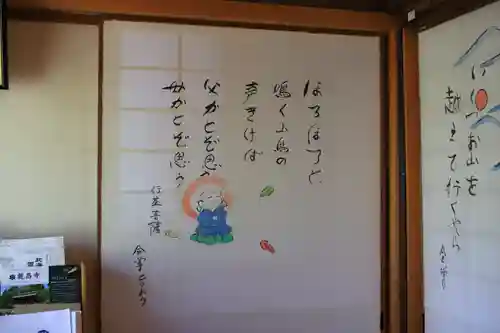 ほろほろと
鳴く山鳥の
声きけば
父かとぞ思ふ
母かとぞ思ふ
行基菩薩
いくつお山を
越えて行くやら